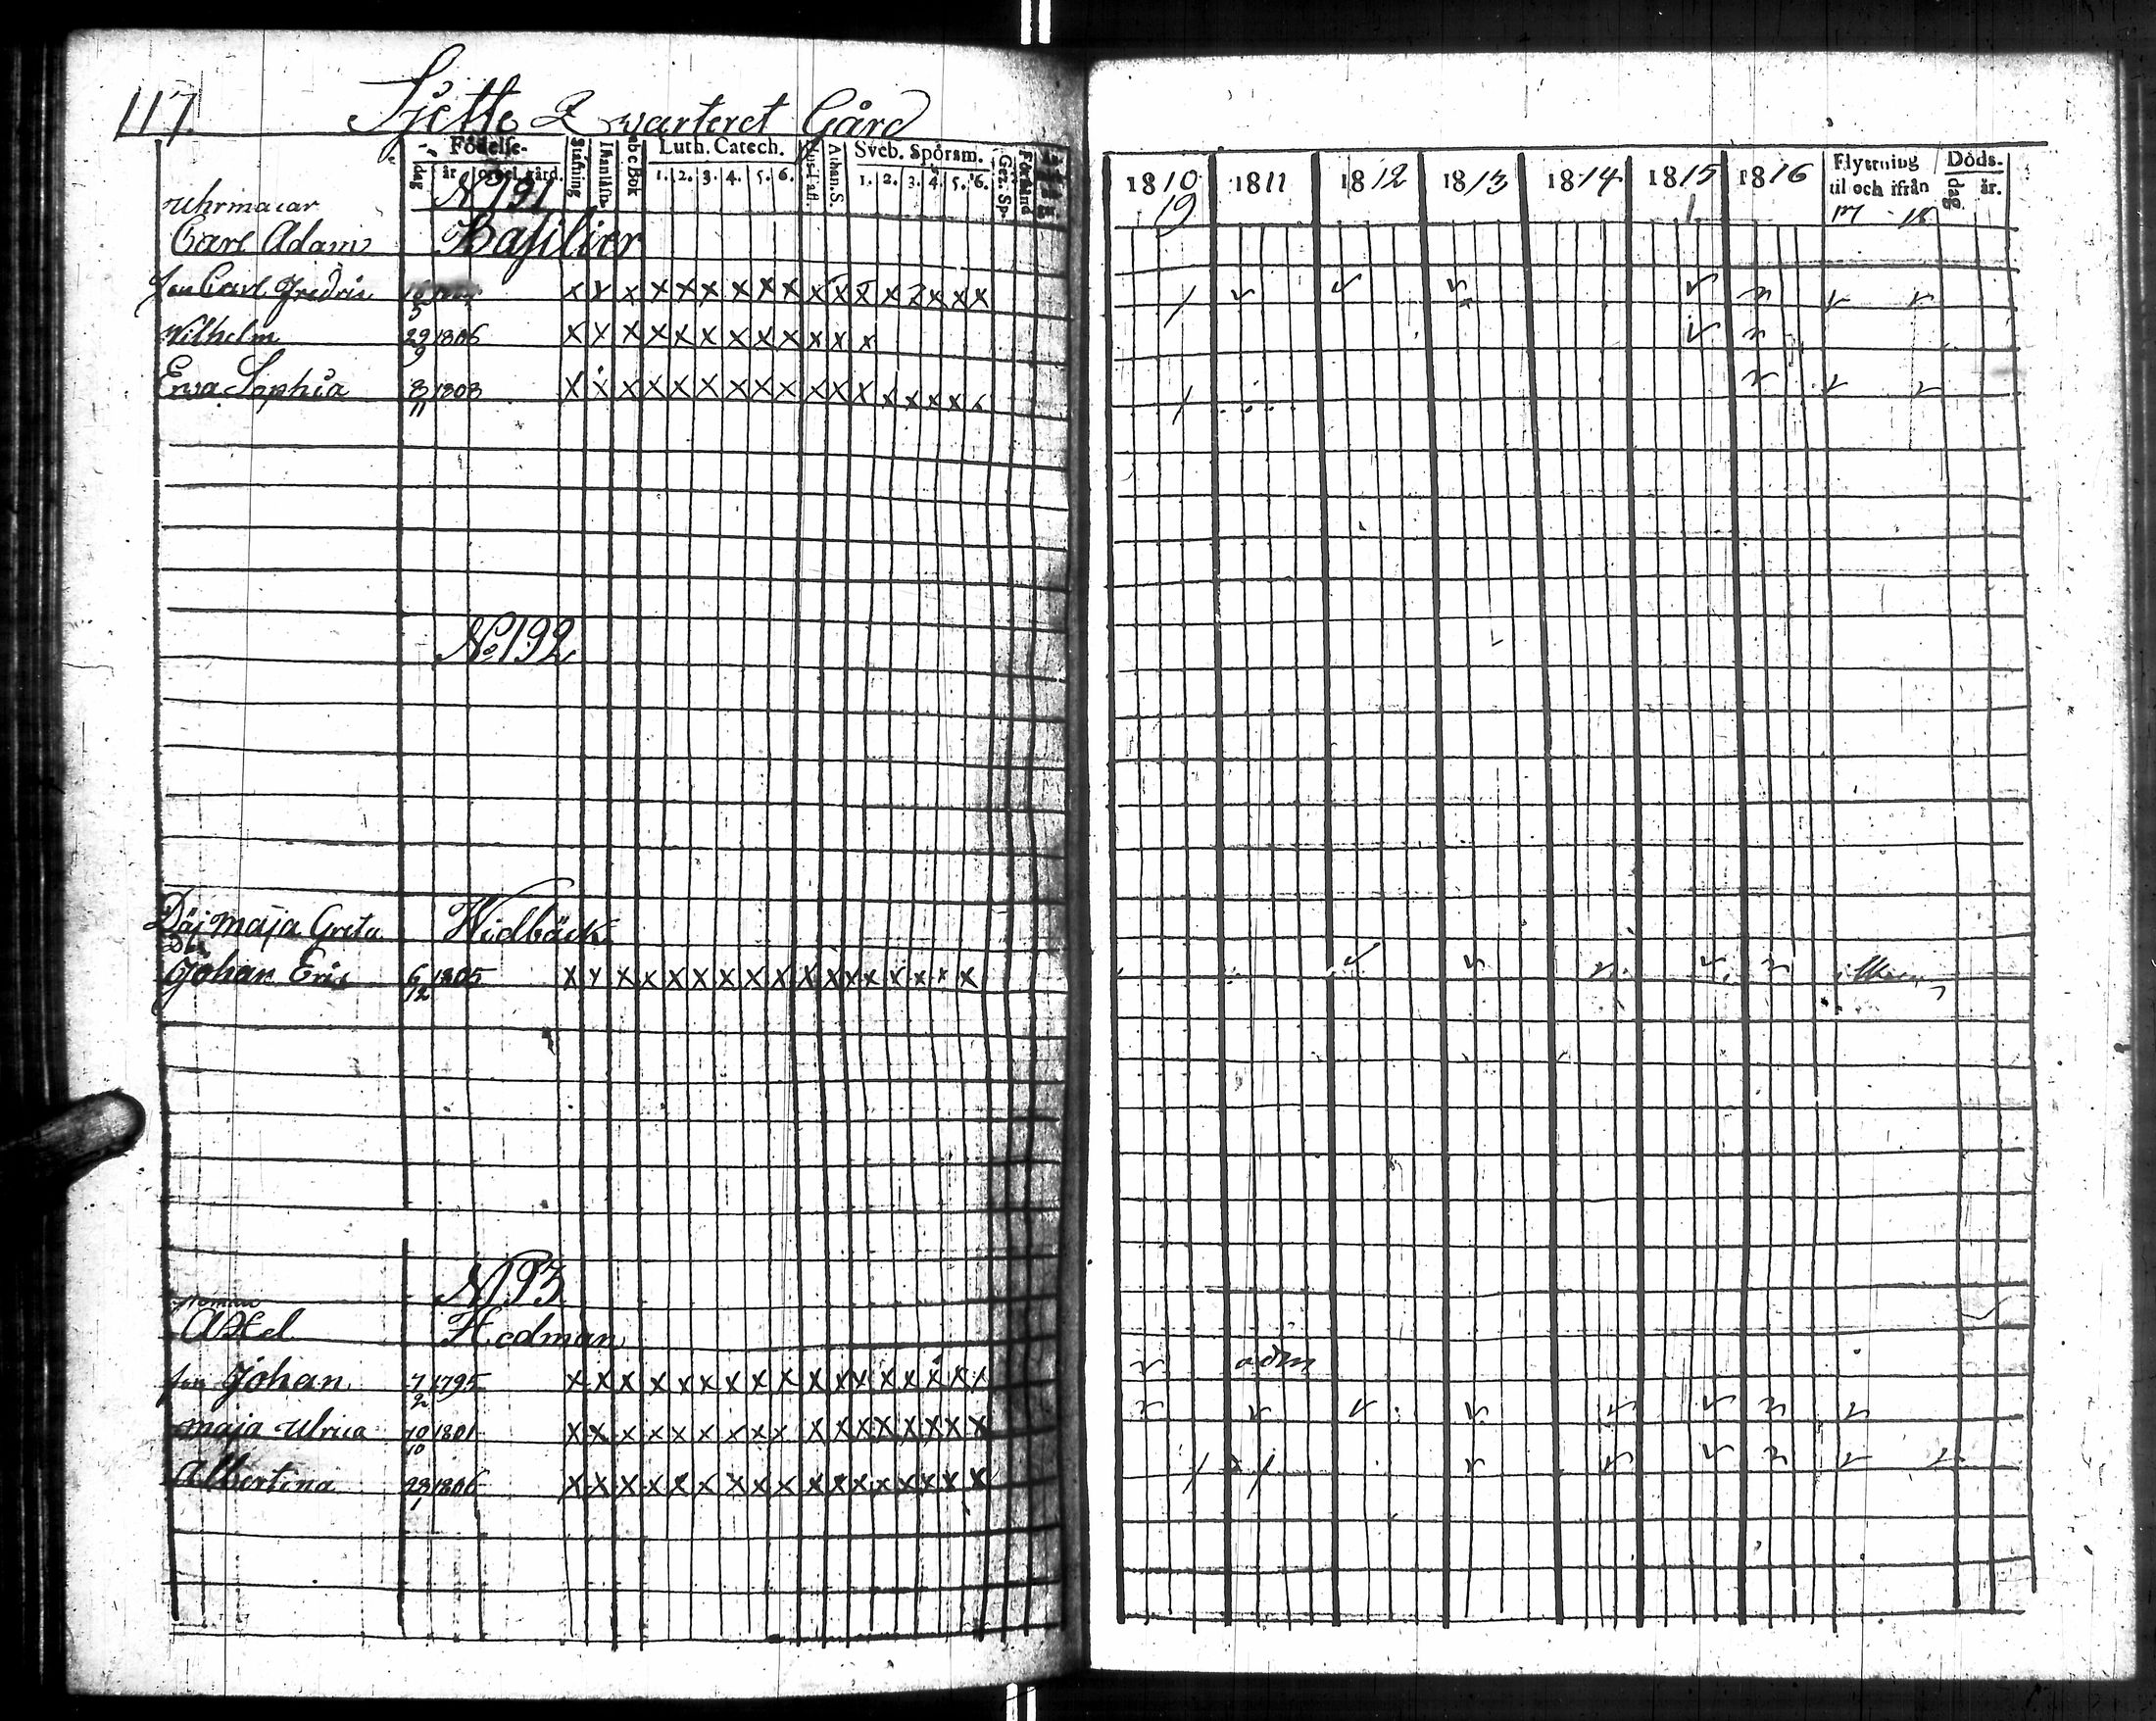 117.
Sjette Qwarteret Gård
Födelse-
dag år ort el. gård.
Stafning
Innanläsn.
abc Bok
Luth. Catech.
1. 2. 3. 4. 5. 6.
Hus-Tafl.
Athan. S.
Sveb. Spörsm.
1. 2. 3. 4. 5. 6.
Gez. Sp.
Förstånd
1810 1811 1812 1813 1814 1815 1816
19
Flyttning
til och ifrån
Döds-
dag år.
N 191
Uhrmacar
Carl Adam Basilier
son Carl Fredric x x x x x x x x x x x x x 2 x x x
Wilhelm 29/9 1806 x x x x x x x x x x x x
Ewa Sophia 8/11 1803 x x x x x x x x x x x x x x x x x
No 192
Maja Greta Widbäck
Johan Eric 6/12 1805 x x x x x x x x x x x x x x x x x
N 193
Axel Hedman
son Johan 7/2 1795 x x x x x x x x x x x x x x x x x adm
Maja Ulrica 10/10 1801 x x x x x x x x x x x x x x x x x
Albertina 23/1 1806 x x x x x x x x x x x x x x x x x